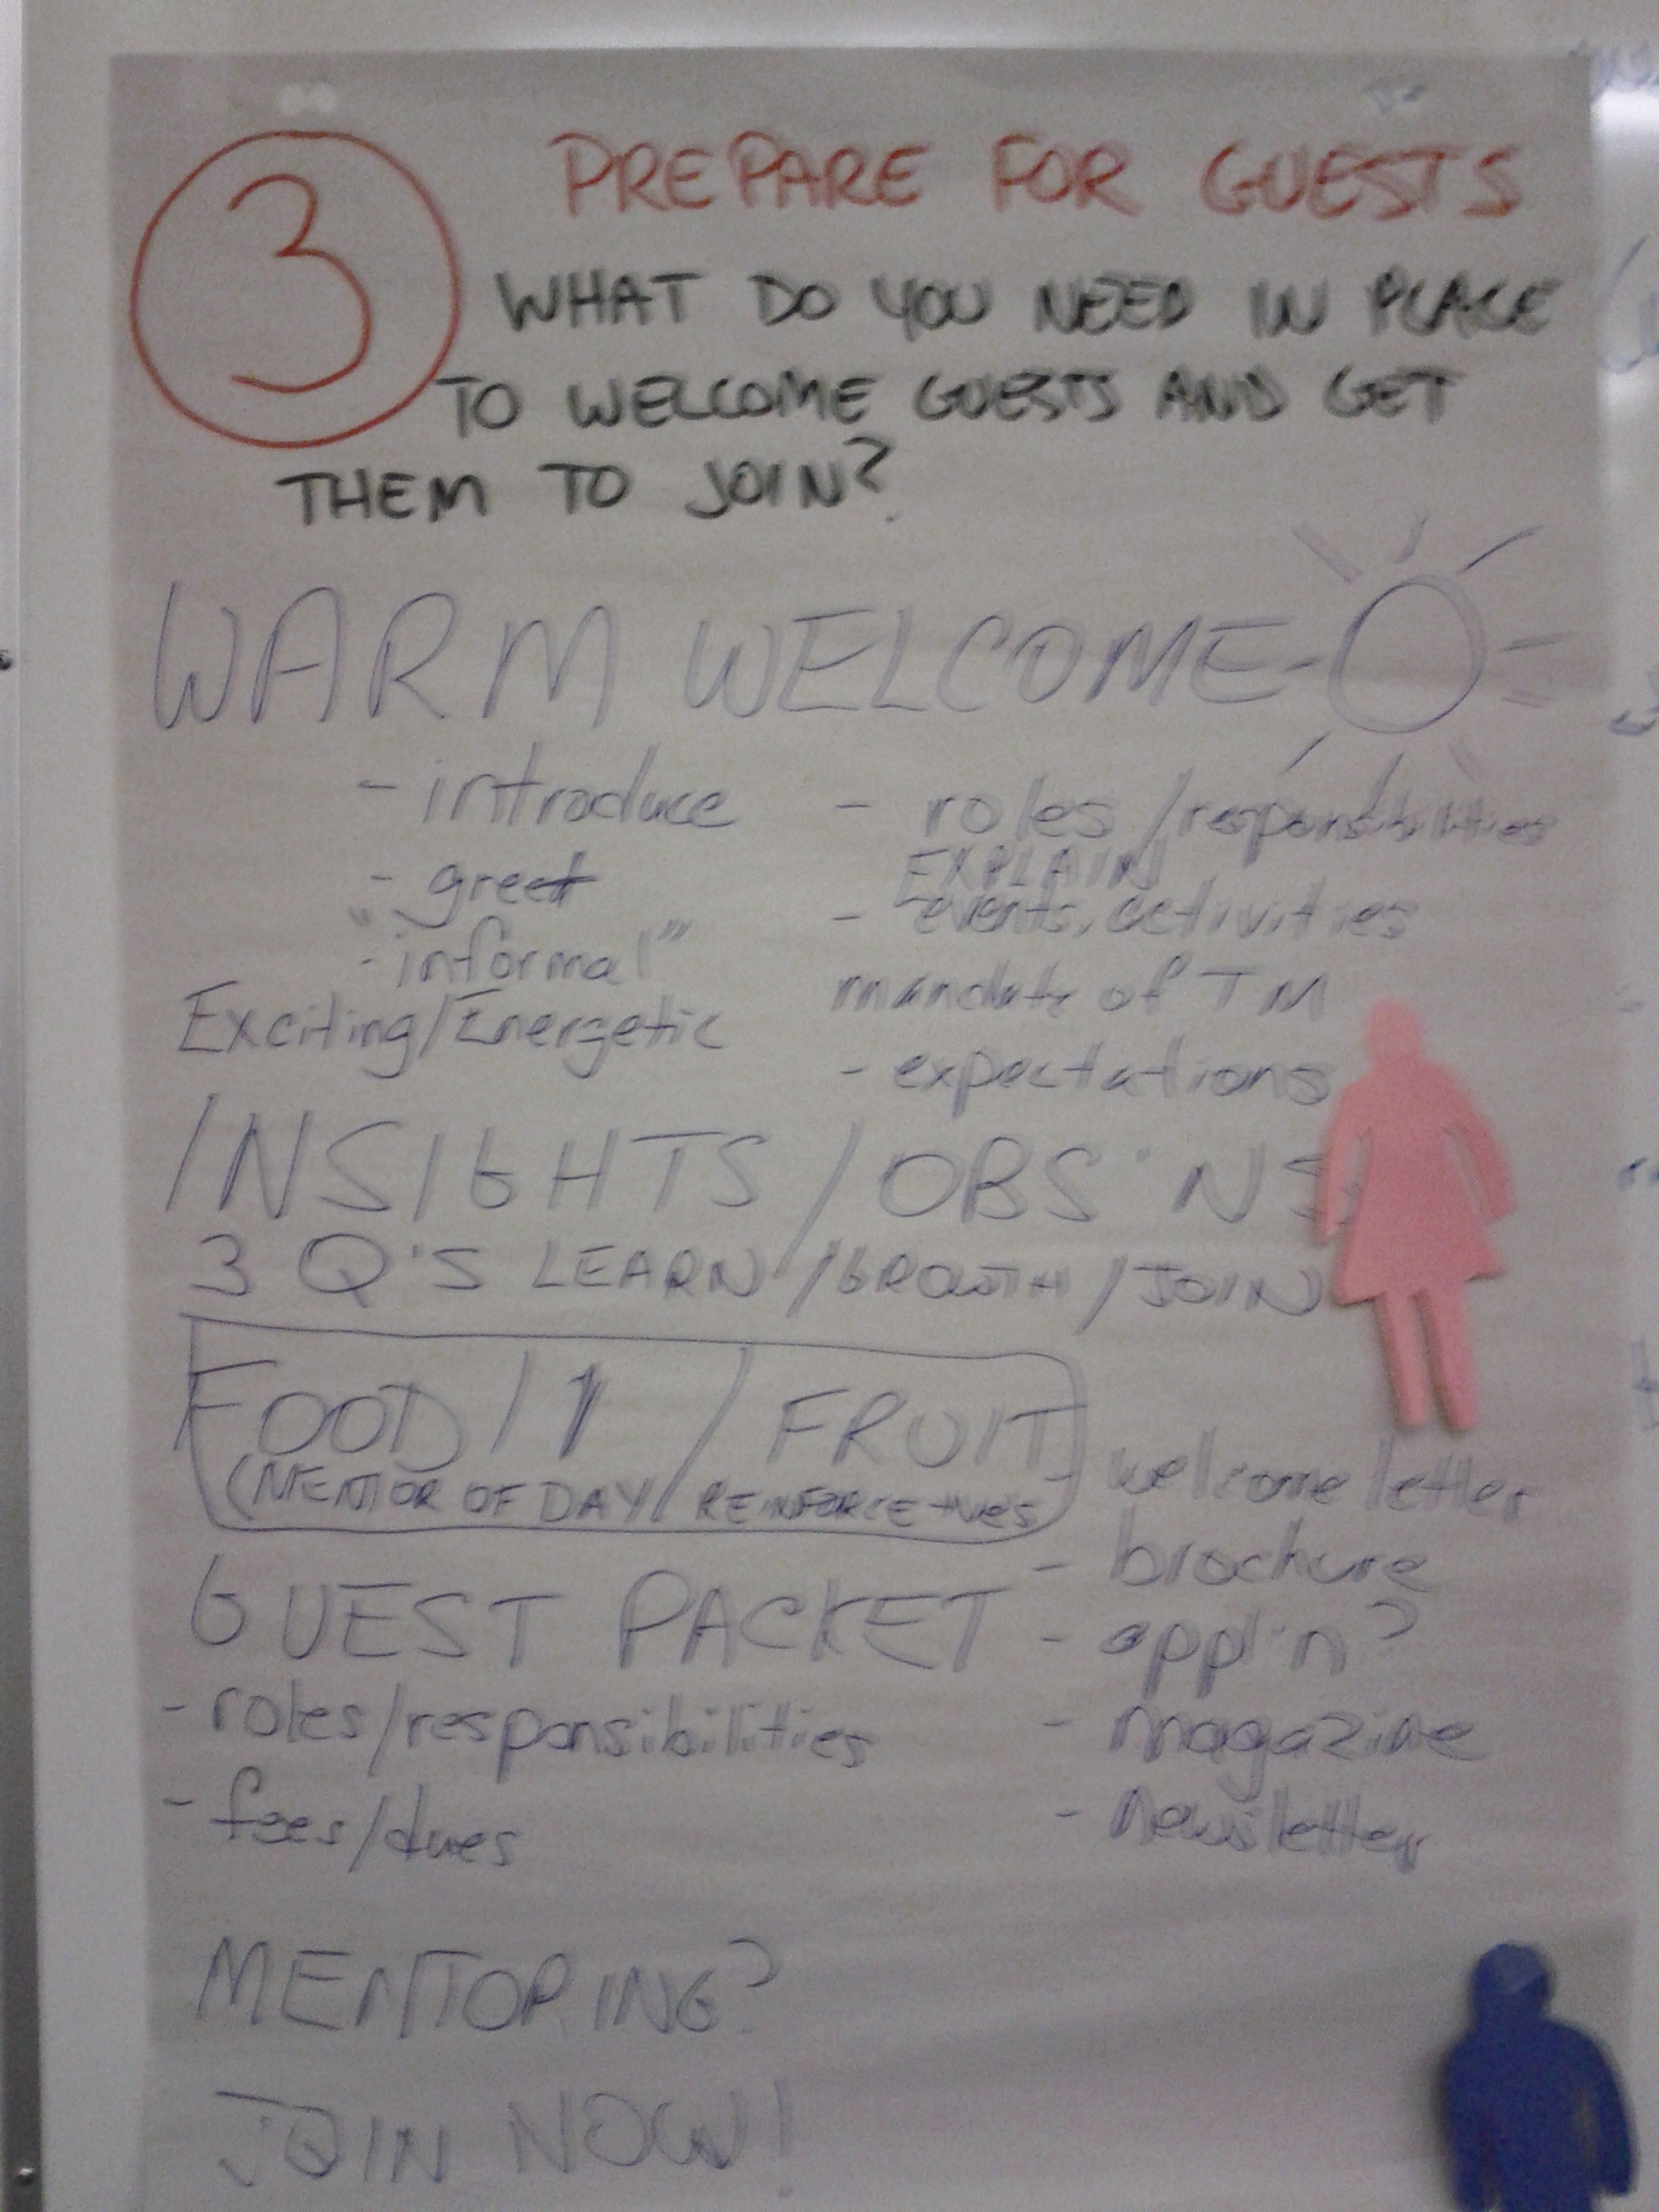 3
PREPARE FOR GUESTS
WHAT DO YOU NEED IN PLACE
TO WELCOME GUESTS AND GET
THEM TO JOIN?
WARM WELCOME
- introduce
- greet
- "informal"
Exciting/Energetic
- roles/responsibilities
EXPLAIN
- events, activities
mandate of TM
- expectations
INSIGHTS/OBS'NS
3 Q'S LEARN/GROWTH/JOIN
FOOD/1/FRUIT
(MENTOR OF DAY/REINFORCE +ves
GUEST PACKET
- roles/responsibilities
- fees/dues
welcome letter
- brochure
- appl'n?
- magazine
- newsletter
MENTORING?
JOIN NOW!